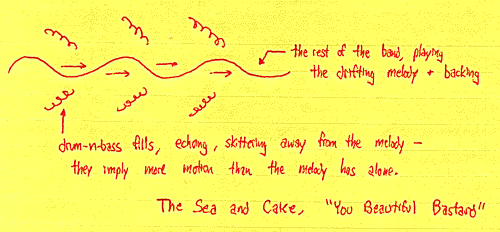 the rest of the band, playing
the drifting melody + backing
drum-n-bass fills, echoing, skittering away from the melody —
they imply more motion than the melody has alone.
The Sea and Cake, "You Beautiful Bastard"